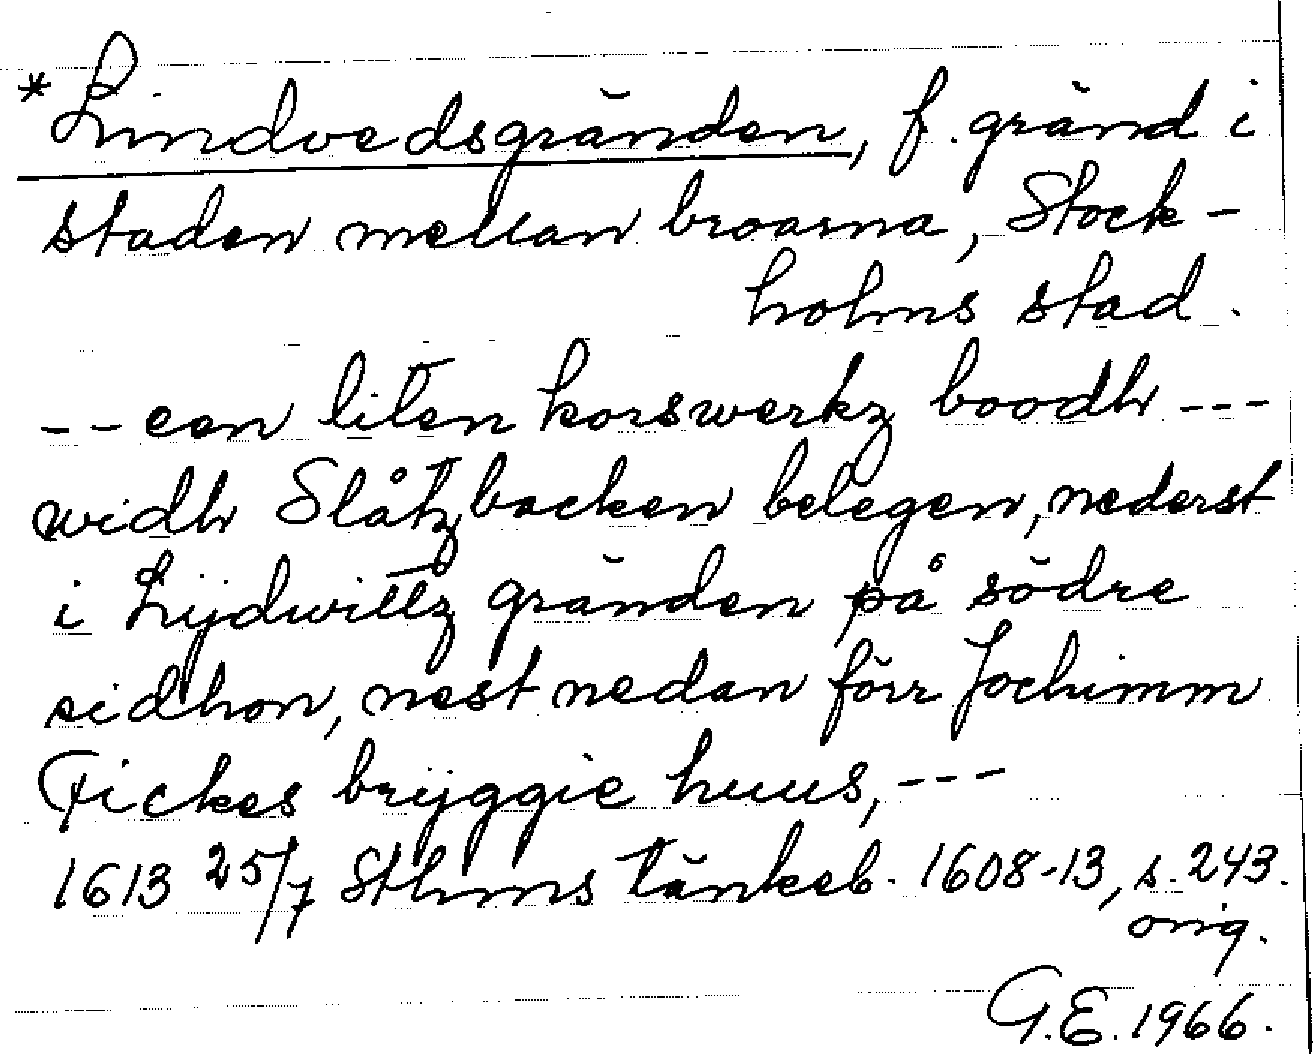 *Lindvedsgränden, f. gränd i
staden mellan broarna, Stock-
holms stad.
-- een liten korswerkz boodh ---
widh Slåtzbacken belegen, nederst
i Lijdwittz gränden på södre
sidhon, nest nedan förr Jochimm
Fickes brijggie huus, ---
1613 25/7 Sthms tänkeb. 1608-13, s. 243.
orig.
G.E. 1966.